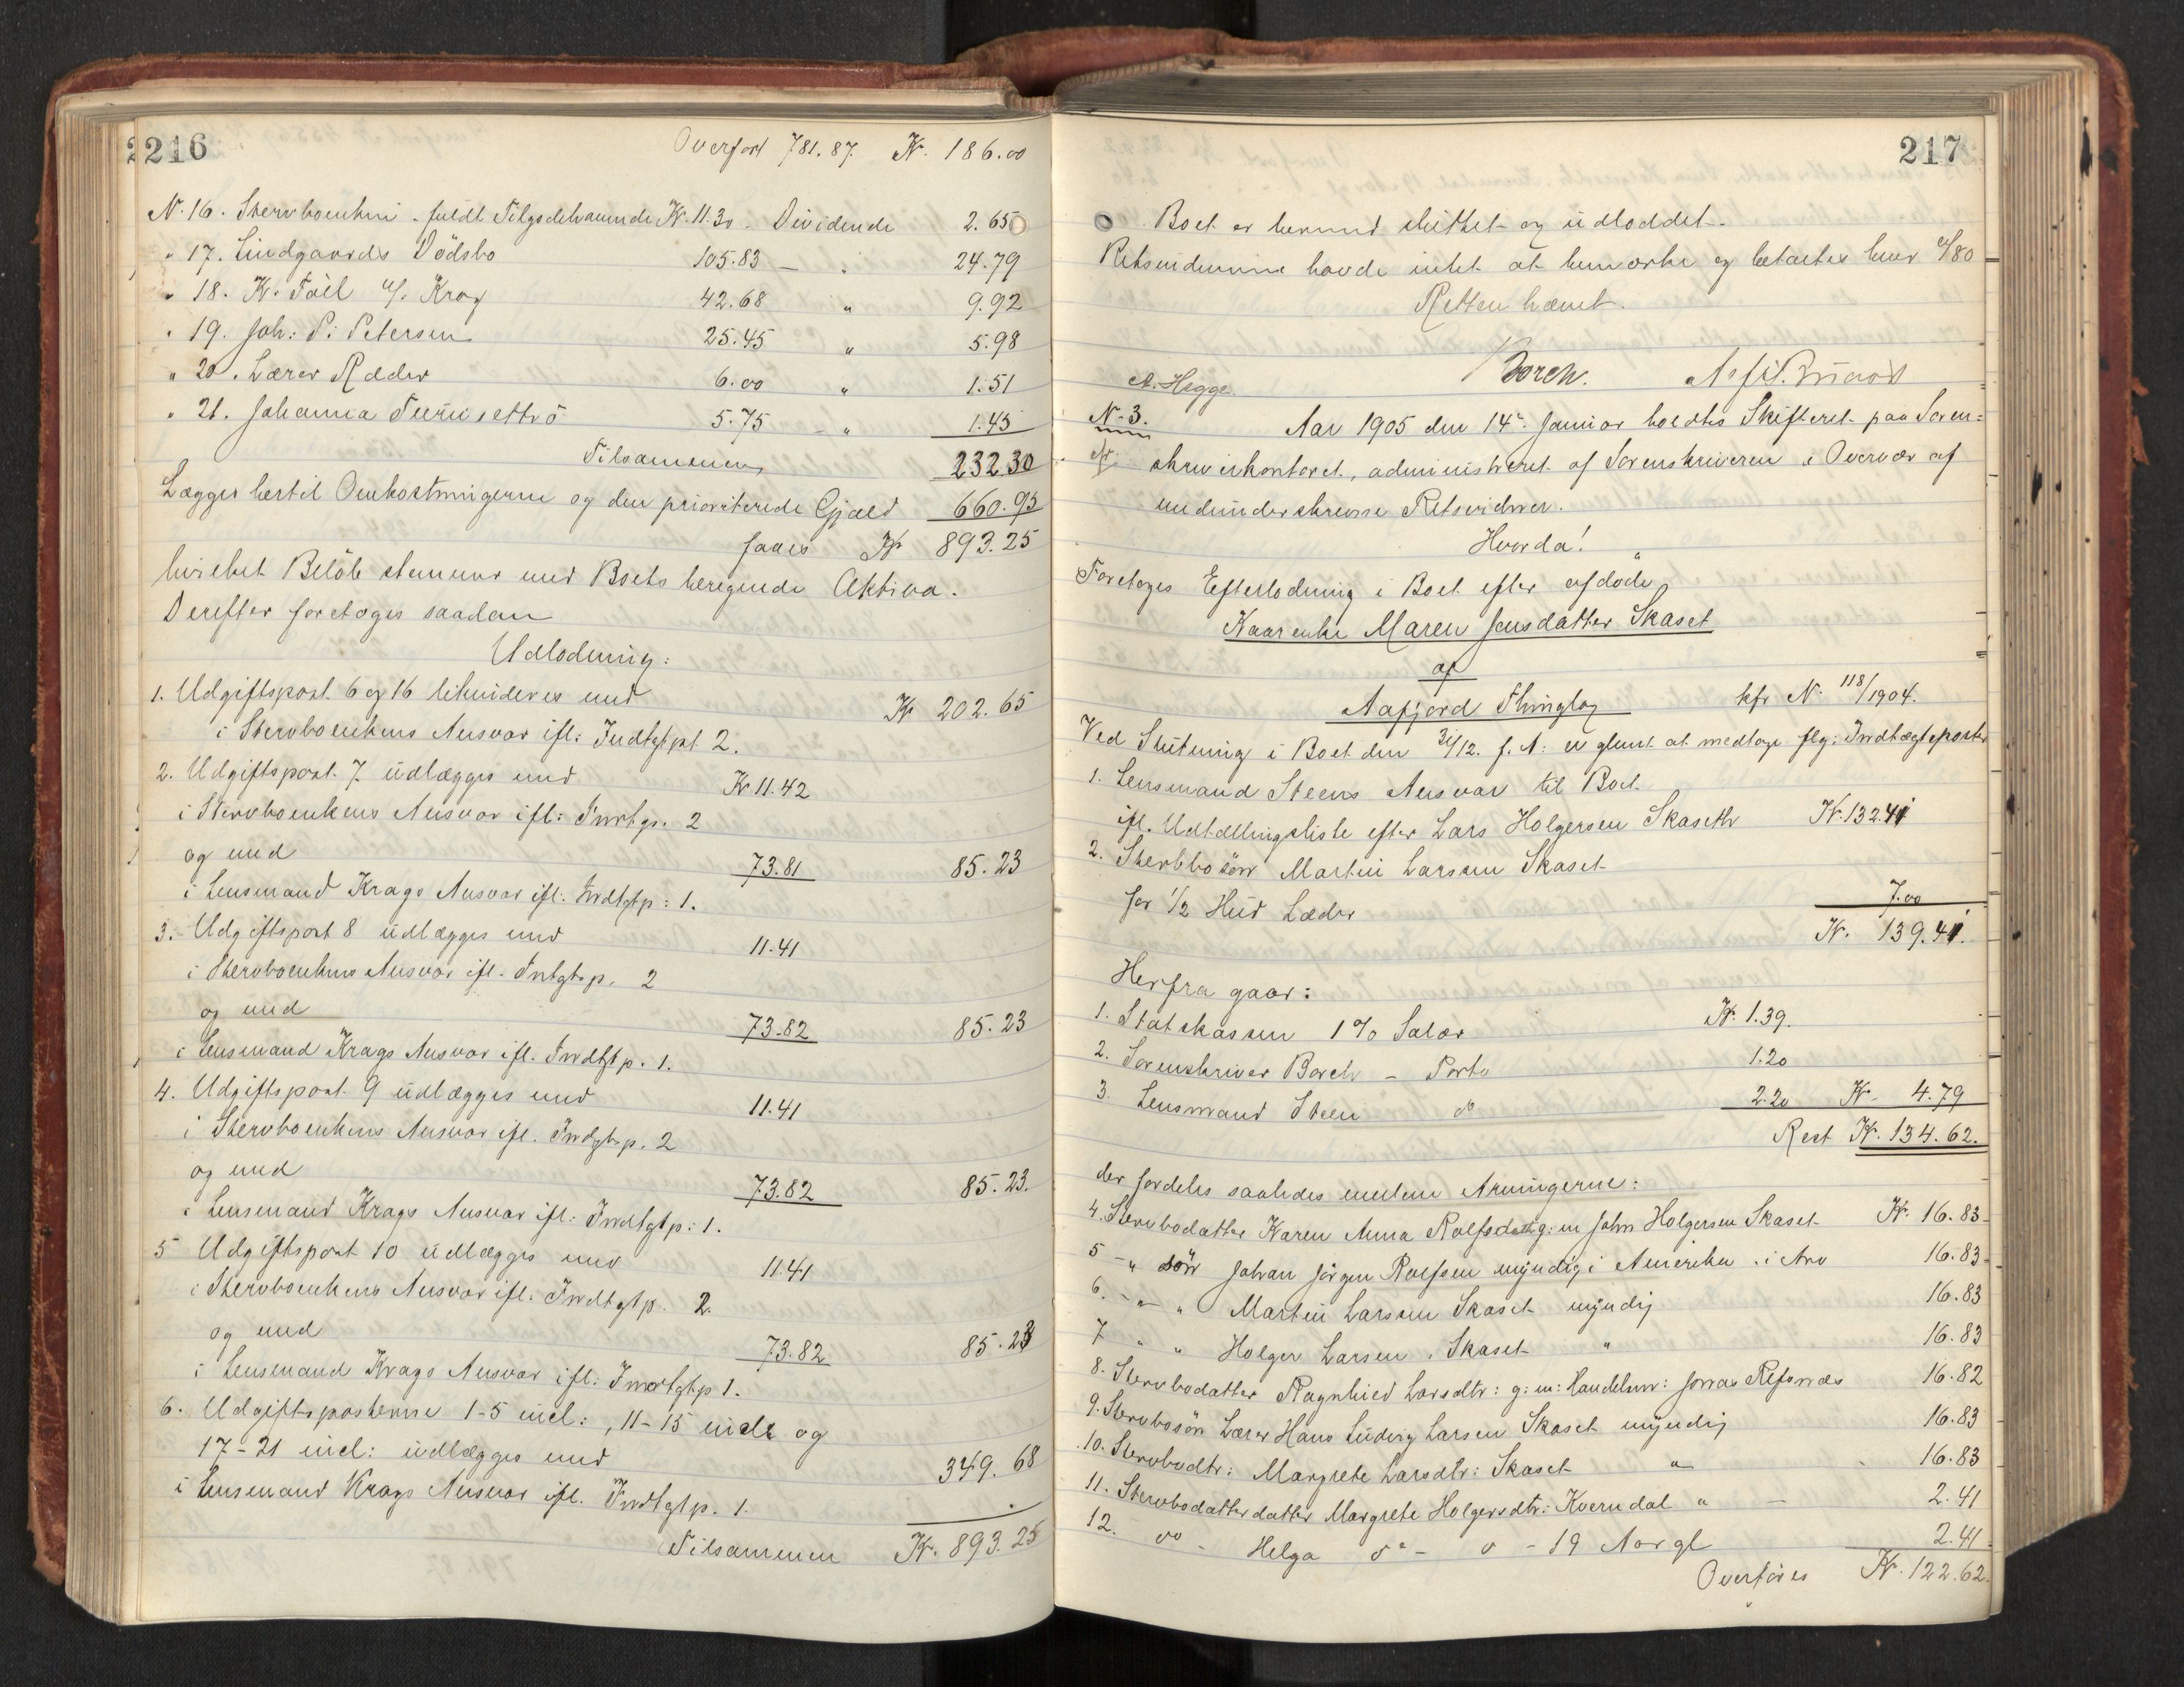 216
Overført 781.87. Kr. 186.00
N. 16. Stervboenken fuldt Tilgodehavende Kr. 11.30. Dividende 2.65
" 17. Lindgaards Dödsbo 105.83 — " 24.79
" 18. K. Toil v/. Krag 42.68 " 9.92
" 19. Joh: P: Petersen 25.45 " 5.98
" 20. Lærer Rædder 6.00 " 1.51
" 21. Johanna 5.75 - " 1.45
Tilsammen 232.30
Lægges hertil Omkostningerne og den prioriterede Gjæld 660.95
faaes Kr 893.25
hvilket Belöb stemmer med Boets beregnede Aktiva.
Derefter foretoges saadan
Udlodning:
1. Udgiftspost 6 og 16 likvideres med Kr 202.65
i Stervboenkens Ansvar ifl: Indtgtpt 2.
2. Udgiftspost 7 udlægges med Kr 11.42
i Stervboenkens Ansvar ifl: Indtgp. 2
og med 73.81 85.23
i Lensmand Krags Ansvar ifl: Indtgtp: 1.
3. Udgiftspost 8 udlægges med 11.41
i Stervboenkens Ansvar ifl. Intgtsp. 2
og med 73.82 85.23
i Lensmand Krags Ansvar ifl. Indtgtp. 1.
4. Udgiftspost 9 udlægges med 11.41
i Stervboenkens Ansvar ifl. Indgtsp. 2
og med 73.82 85.23.
i Lensmand Krags Ansvar ifl: Indtgtp: 1.
5 Udgiftspost 10 udlægges med 11.41
i Stervboenkens Ansvar ifl. Indtgtp. 2.
og med 73.82 85.23
i Lensmand Krags Ansvar ifl: Indtgtp 1.
6. Udgiftsposterne 1-5 incl:, 11-15 incl. og
17-21 incl: udlægges med 349.68
i Lensmand Krags Ansvar ifl. Indtgtp. 1.
Tilsammen Kr. 893.25
217
Boet er hermed sluttet og udloddet.
Retsvidnerne havde intet at bemærke og betaltes hver a/80
Retten hævet.
Borch.
A. Hegge.
N. 3. Aar 1905 den 14de Januar holdtes Skifteret paa Soren=
skriverkontoret, administreret af Sorenskriveren i Overvær af
medunderskrevne Retsvidner.
Hvorda!
Foretoges Efterlodning i Boet efter afdøde
Kaarenke Maren Jensdatter Skaset
af
Aafjord Thinglag kfr N. 118/1904.
Ved Slutning i Boet den 31/12. f. A: er glemt at medtage flg: Indtægtsposter
1. Lensmand Steens Ansvar til Boet
ifl. Udtællingsliste efter Lars Holgersen Skaseth Kr. 132.41
2. Stervbosön Martin Larsen Skaset
for 1/2 Hud Læder 7.00
Kr. 139.41.
Herfra gaar:
1. Statskassen 1% Salær Kr. 1.39.
2. Sorenskriver Borch - Porto 1.20
3. Lensmand Steen do 2.20 Kr. 4.79
Rest Kr. 134.62.
der fordeles saaledes mellem Arvingerne:
4. Stervbodatter Karen Anna Rolfsdatter g: m John Holgersen Skaset Kr. 16.83
5 - " sön Johan Jörgen Rolfsen myndig i Amerika . i Arv 16.83
6. - " - " Martin Larsen Skaset myndig 16.83
7 " " Holger Larsen . Skaset " 16.83
8. Stervbodatter Ragnhild Larsdtr: g: m: Handelsm: Jonas Refsnæs 16.82
9. Stervbosön Lærer Hans Ludvig Larsen Skaset myndig 16.83
10. Stervbodtr: Margrete Larsdtr: Skaset " 16.83
11. Stervbodatterdatter Margrete Holgersdtr: Kverndal " — 2.41
12. do - Helga do - o - 19 Aar gl 2.41
Overføres Kr. 122.62.